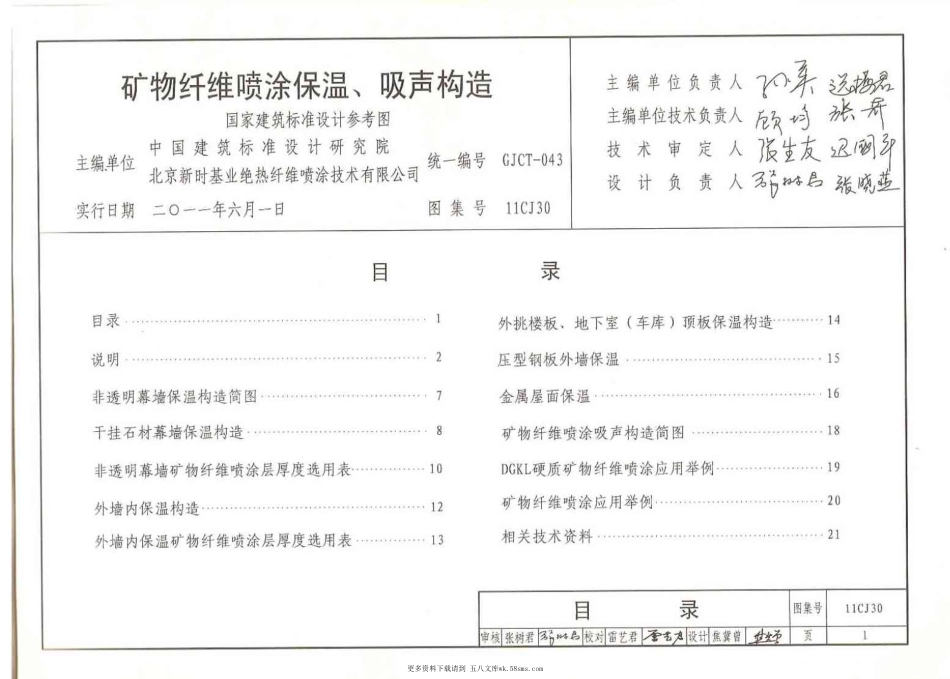 矿物纤维喷涂保温、吸声构造
国家建筑标准设计参考图
主编单位 中国建筑标准设计研究院
北京新时基业绝热纤维喷涂技术有限公司
统一编号 GJCT-043
实行日期 二〇一一年六月一日
图集号 11CJ30
主编单位负责人
主编单位技术负责人 顾均 张君
技术审定人 张生友
设计负责人 张晓燕
目 录
目录 1
说明 2
非透明幕墙保温构造简图 7
干挂石材幕墙保温构造 8
非透明幕墙矿物纤维喷涂层厚度选用表 10
外墙内保温构造 12
外墙内保温矿物纤维喷涂层厚度选用表 13
外挑楼板、地下室(车库)顶板保温构造 14
压型钢板外墙保温 15
金属屋面保温 16
矿物纤维喷涂吸声构造简图 18
DGKL硬质矿物纤维喷涂应用举例 19
矿物纤维喷涂应用举例 20
相关技术资料 21
目 录 图集号 11CJ30
审核 张树君 校对 雷艺君 设计 焦冀曾 页 1
更多资料下载请到 五八文库wk.58sms.com